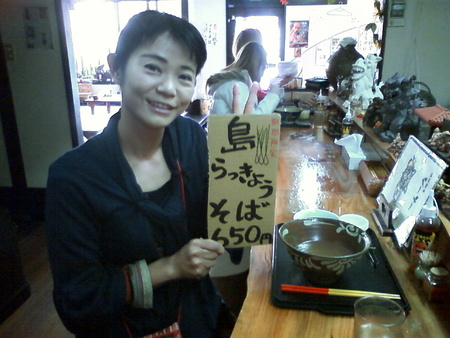 島
らっきょう
そば
650円